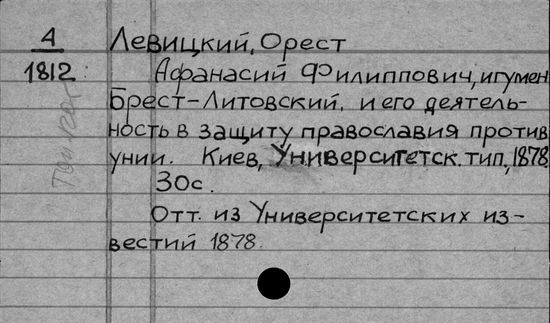 А
1812
Левицкий, Орест
Афанасий Филиппович, игумен
Брест-Литовский, и его деятель-
ность в защиту православия против
унии. Киев, Университетск. тип., 1878.
30с.
Отт. из Университетских из-
вестий 1878.